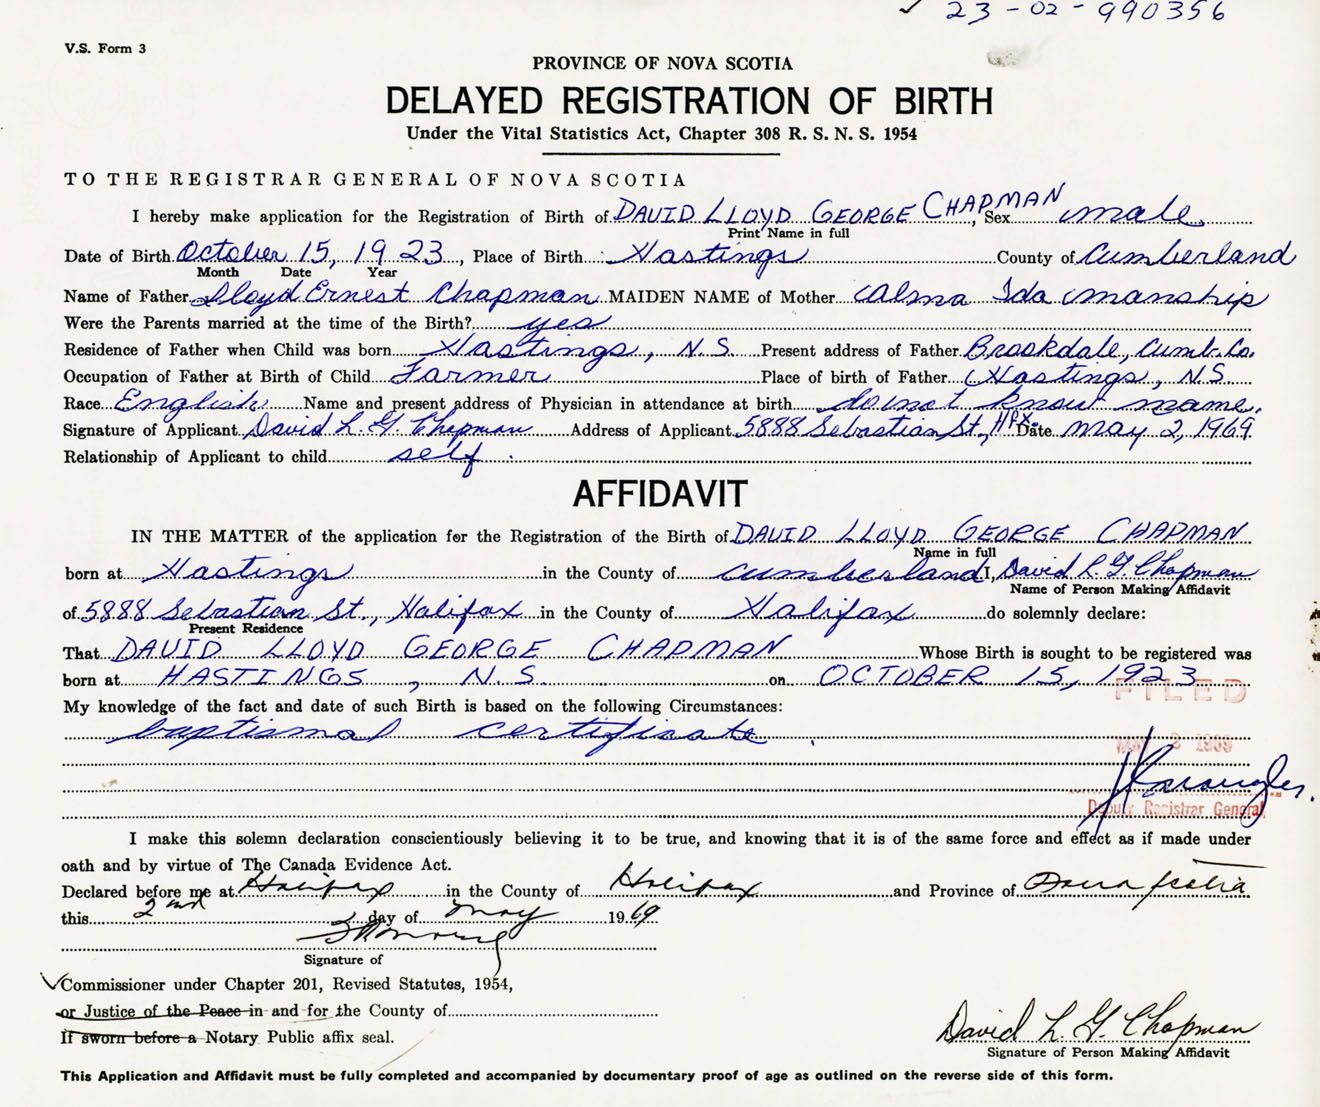 23-02-990356
V.S. Form 3
PROVINCE OF NOVA SCOTIA
DELAYED REGISTRATION OF BIRTH
Under the Vital Statistics Act, Chapter 308 R. S. N. S. 1954
TO THE REGISTRAR GENERAL OF NOVA SCOTIA
I hereby make application for the Registration of Birth of DAVID LLOYD GEORGE CHAPMAN, Sex male.
Print Name in full
Date of Birth October 15, 1923, Place of Birth Hastings County of Cumberland
Month Date Year
Name of Father Lloyd Ernest Chapman MAIDEN NAME of Mother Alma Ida Manship
Were the Parents married at the time of the Birth? yes
Residence of Father when Child was born Hastings, N.S. Present address of Father Brookdale, Cumb. Co.
Occupation of Father at Birth of Child Farmer Place of birth of Father Hastings, N.S.
Race English Name and present address of Physician in attendance at birth do not know name.
Signature of Applicant David L. G. Chapman Address of Applicant 5888 Sebastian St., Hfx. Date May 2, 1969
Relationship of Applicant to child self.
AFFIDAVIT
IN THE MATTER of the application for the Registration of the Birth of DAVID LLOYD GEORGE CHAPMAN
Name in full
born at Hastings in the County of Cumberland I, David L. G. Chapman
Name of Person Making Affidavit
of 5888 Sebastian St., Halifax in the County of Halifax do solemnly declare:
Present Residence
That DAVID LLOYD GEORGE CHAPMAN Whose Birth is sought to be registered was
born at HASTINGS, N.S. on OCTOBER 15, 1923
FILED
My knowledge of the fact and date of such Birth is based on the following Circumstances:
baptismal certificate.
MAY 2 1969
Deputy Registrar General
I make this solemn declaration conscientiously believing it to be true, and knowing that it is of the same force and effect as if made under
oath and by virtue of The Canada Evidence Act.
Declared before me at Halifax in the County of Halifax and Province of Nova Scotia
this 2nd day of May 1969
Signature of
Commissioner under Chapter 201, Revised Statutes, 1954,
or Justice of the Peace in and for the County of
If sworn before a Notary Public affix seal.
David L. G. Chapman
Signature of Person Making Affidavit
This Application and Affidavit must be fully completed and accompanied by documentary proof of age as outlined on the reverse side of this form.